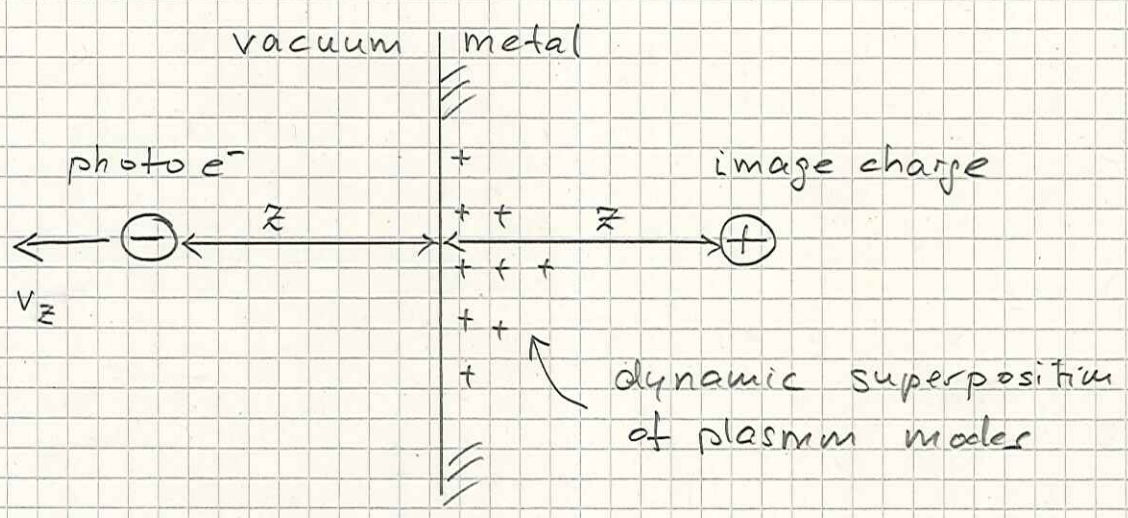 vacuum metal
photo e⁻ image charge
+
z + + z
− +
+ + +
v_z
+ +
+ dynamic superposition
of plasmon modes